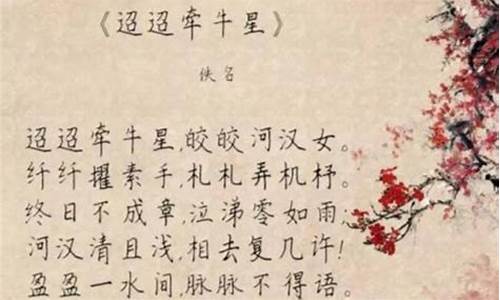 《迢迢牵牛星》
佚名
迢迢牵牛星,皎皎河汉女。
纤纤擢素手,札札弄机杼。
终日不成章,泣涕零如雨;
河汉清且浅,相去复几许!
盈盈一水间,脉脉不得语。